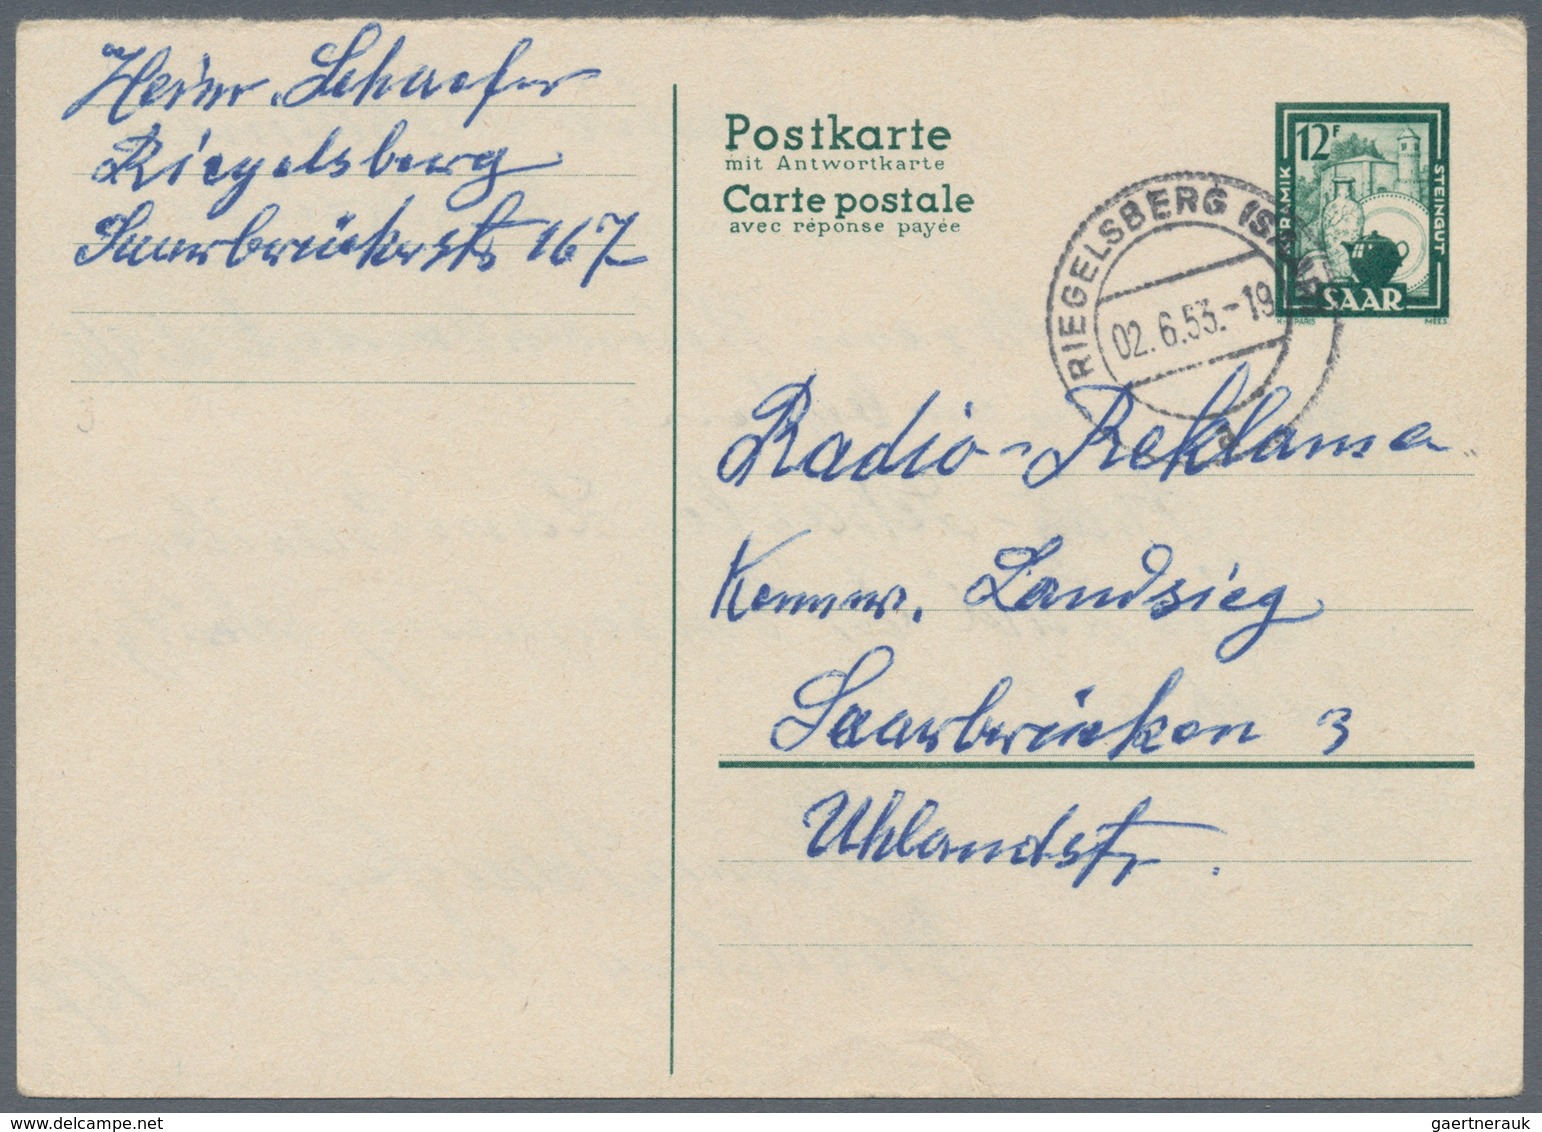 Heinr. Schaefer
Riegelsberg
Saarbrückerstr 167
Postkarte
mit Antwortkarte
Carte postale
avec réponse payée
12F
KERAMIK
STEINGUT
SAAR
MEES
RIEGELSBERG (SAAR)
02.6.53.-19
a
Radio-Reklame
Kennw. Landsieg
Saarbrücken 3
Uhlandstr.
gaertnerauk